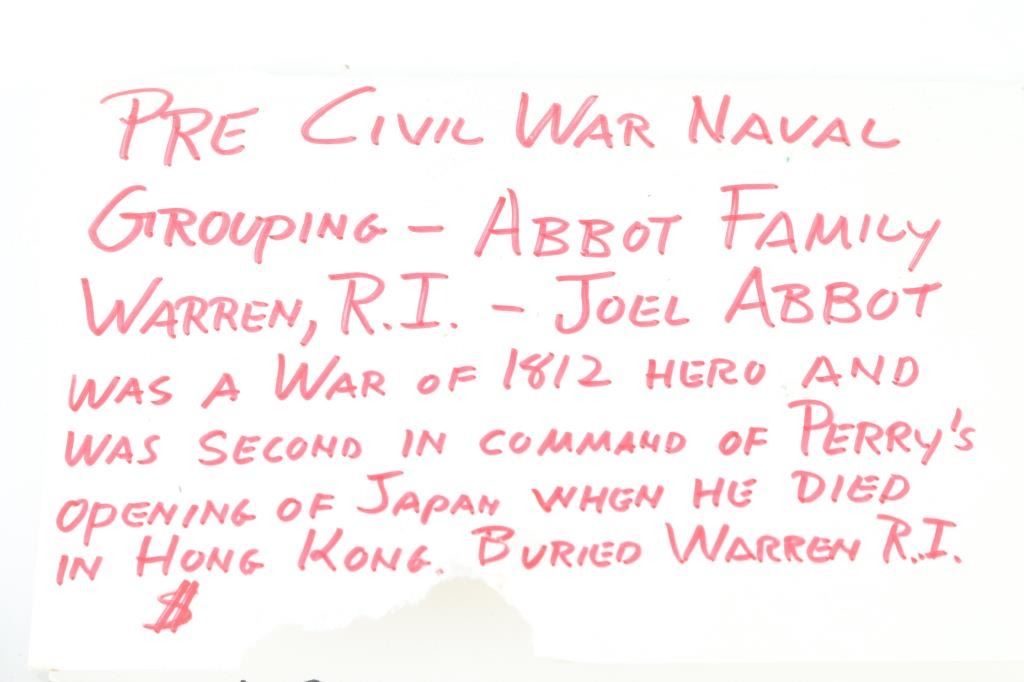 PRE CIVIL WAR NAVAL
GROUPING - ABBOT FAMILY
WARREN, R.I. - JOEL ABBOT
WAS A WAR OF 1812 HERO AND
WAS SECOND IN COMMAND OF PERRY'S
OPENING OF JAPAN WHEN HE DIED
IN HONG KONG. BURIED WARREN R.I.
$